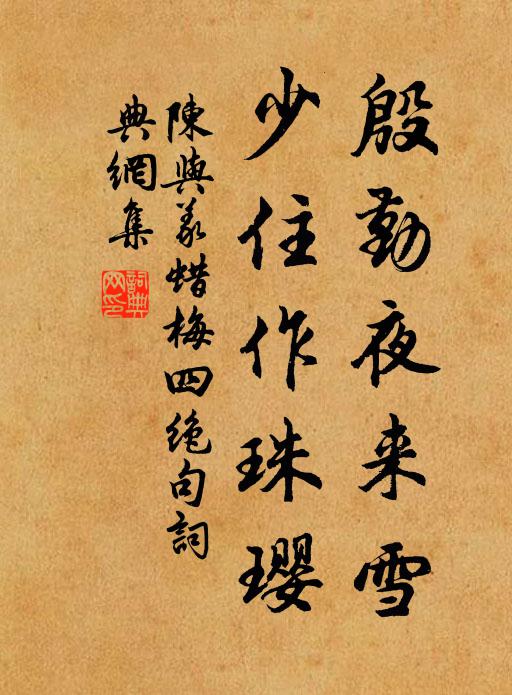 殷勤夜来雪
少住作珠璎
陳與義蜡梅四絶句詞
典網集
詞典网印